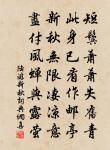 短鬢蕭蕭失舊青
此身已看作郵亭
新秋無限淒涼意
盡付風蟬與露螢
陸游新秋詞典網集